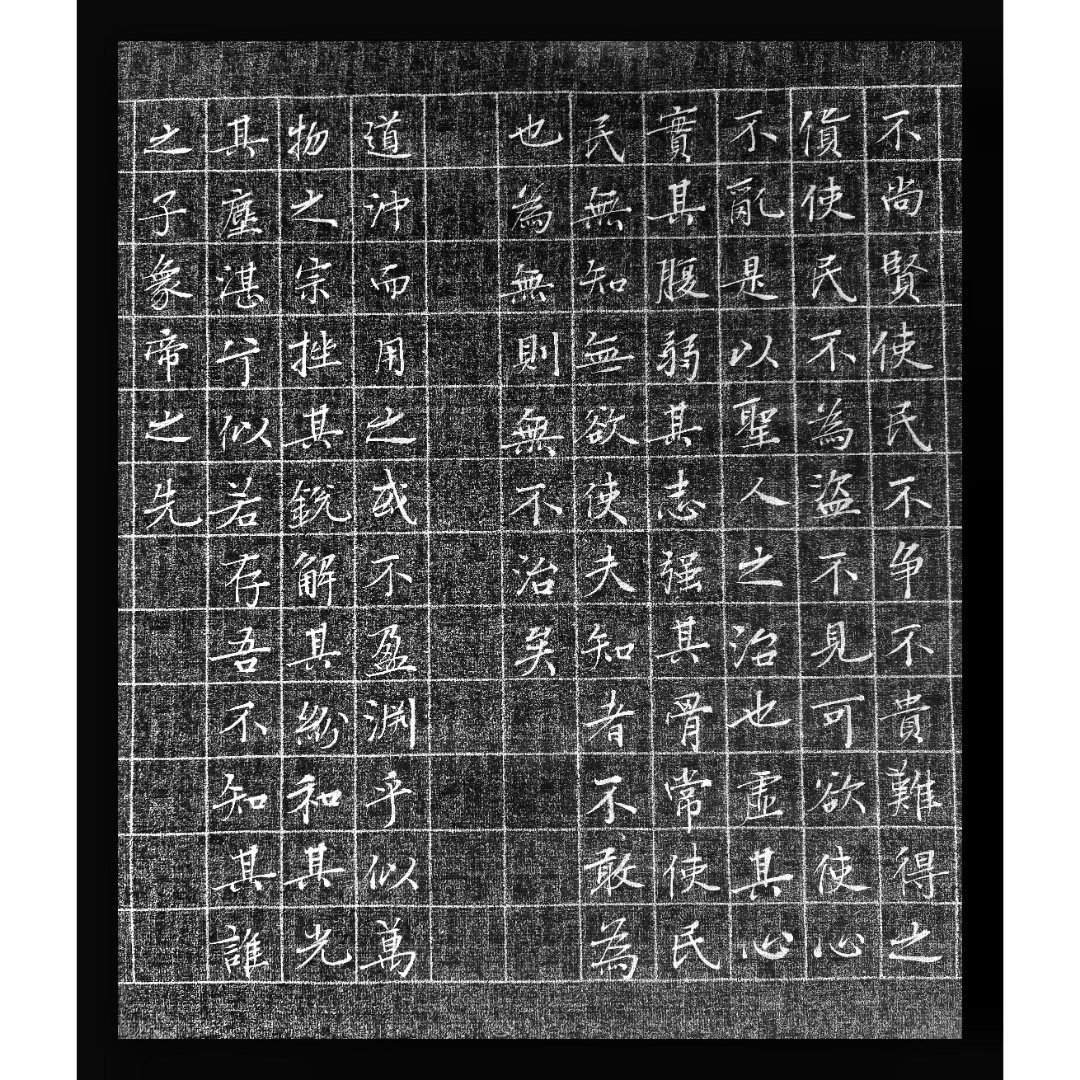 不尚賢使民不争不貴難得之
貨使民不為盜不見可欲使心
不亂是以聖人之治也虛其心
實其腹弱其志强其骨常使民
民無知無欲使夫知者不敢為
也為無則無不治矣
道沖而用之或不盈渊乎似萬
物之宗挫其銳解其紛和其光
其塵湛兮似若存吾不知其誰
之子象帝之先